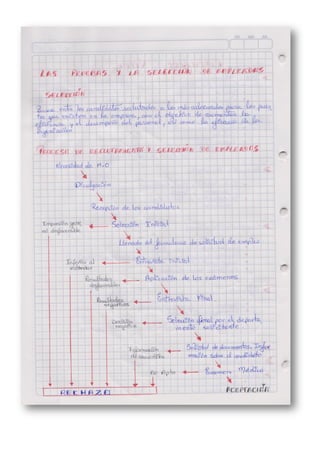 LAS PRUEBAS Y LA SELECCIÓN DE EMPLEADOS
SELECCIÓN
Busca entre los candidatos reclutados a los más adecuados para los pues
tos que existen en la empresa, con el objetivo de aumentar la
eficiencia y el desempeño del personal, así como la eficacia de la
organización
PROCESO DE RECLUTAMIENTO Y SELECCIÓN DE EMPLEADOS
Necesidad de M.O
Divulgación
Recepción de los candidatos
Impresión gene
ral desfavorable
Selección Inicial
Llenado del formulario de solicitud de empleo
Inferior al
estándar
Entrevista Inicial
Resultados
desfavorables
Aplicación de los exámenes
Resultados
negativos
Entrevista Final
Decisión
negativa
Selección final por el departa
mento solicitante
Información
desfavorable
Solicitud de documentos, Infor
mación sobre el candidato
No Apto
Examen Médico
RECHAZO
ACEPTACIÓN